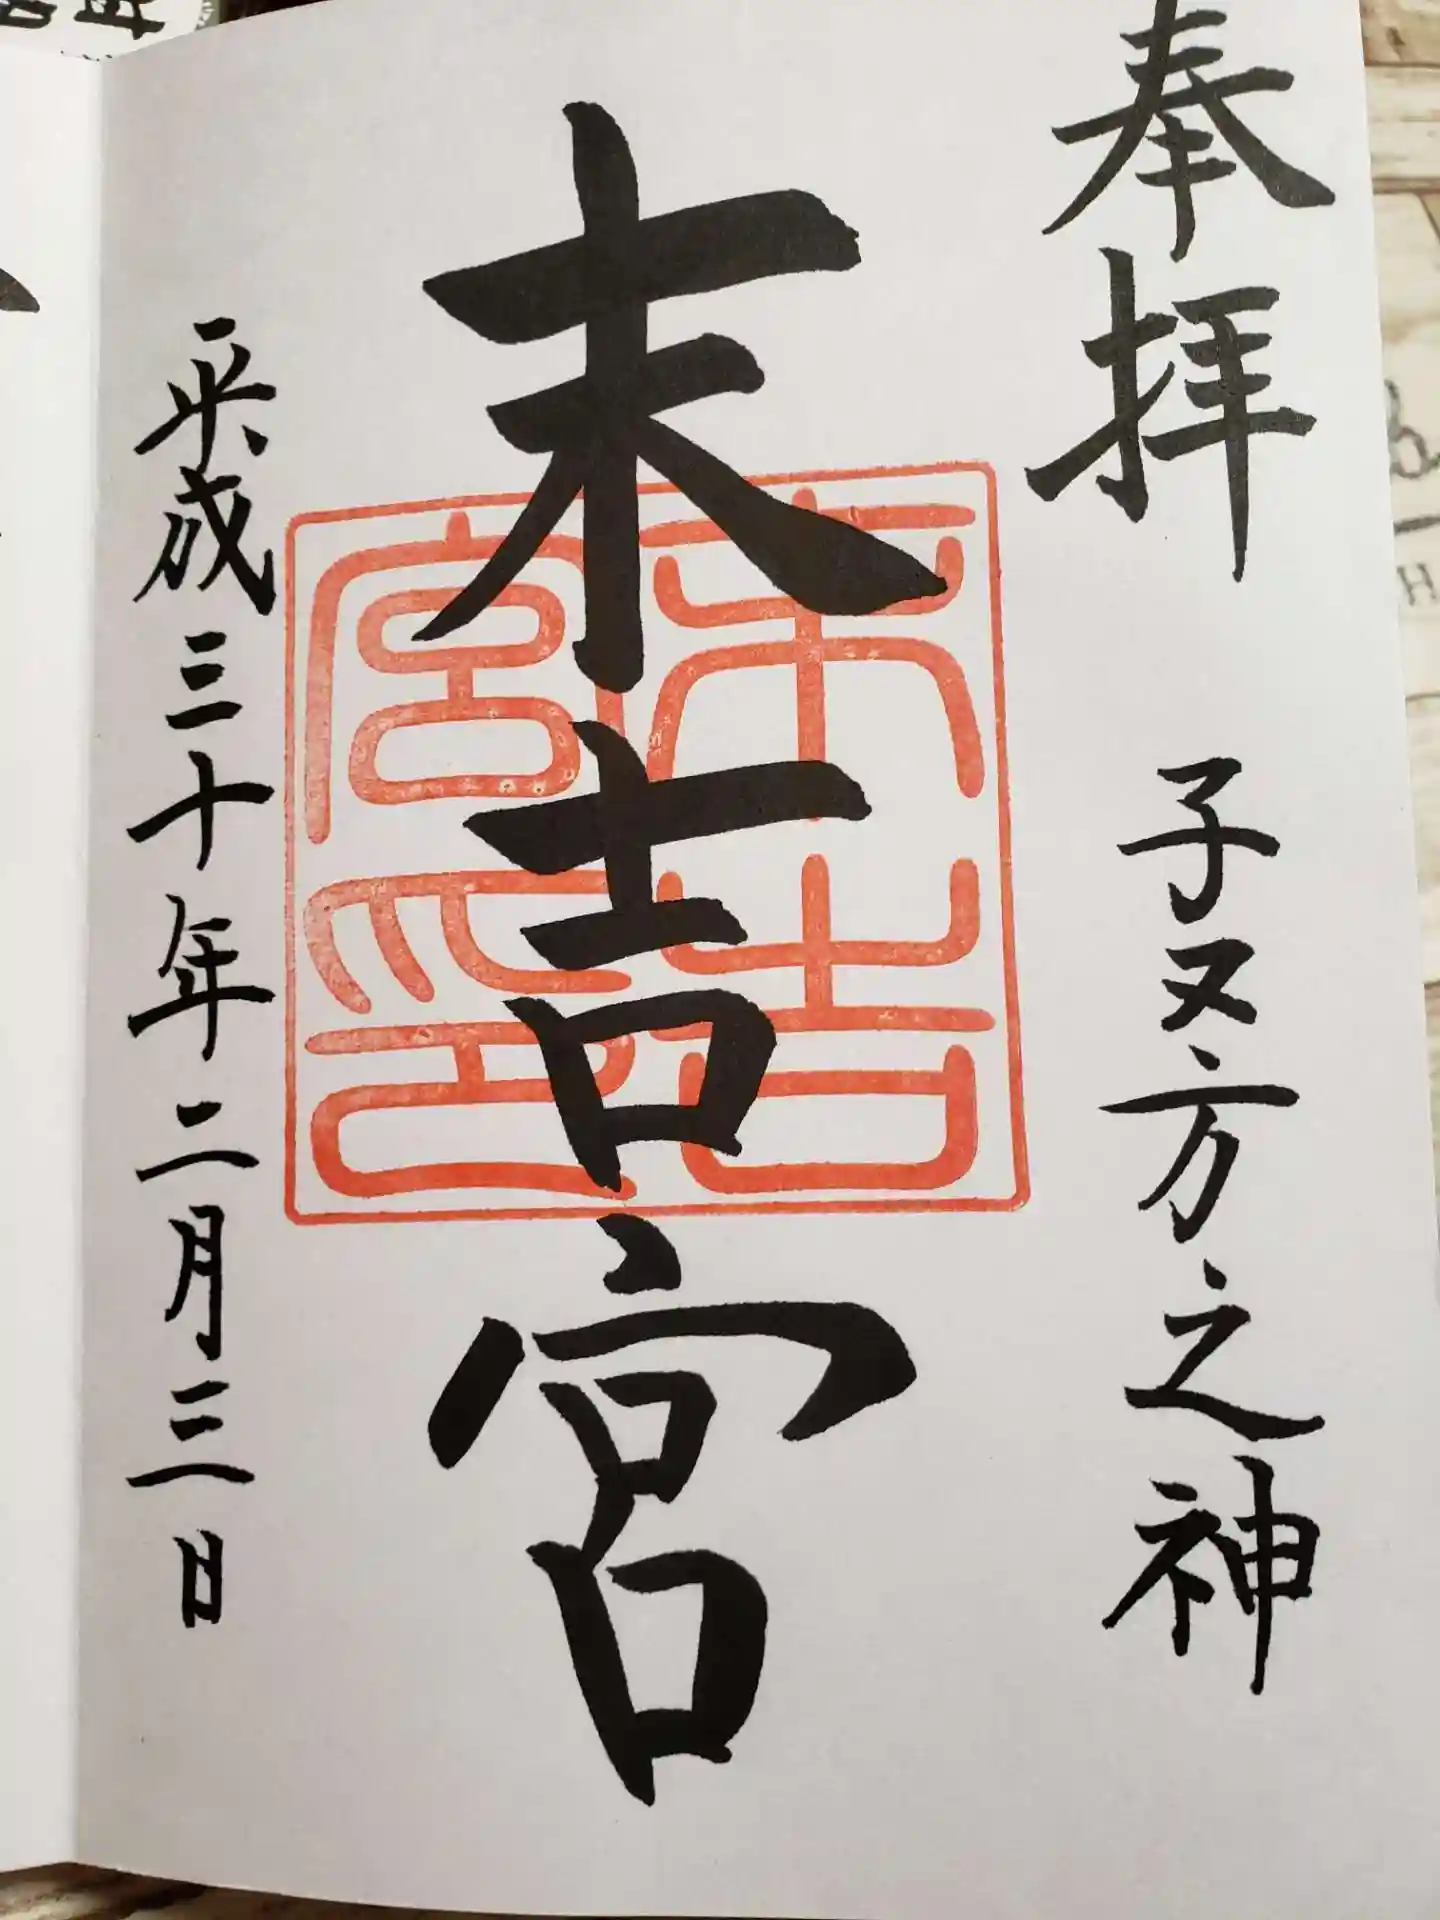 奉拝 子又方之神
末吉宮
末吉宮印
平成三十年二月三日